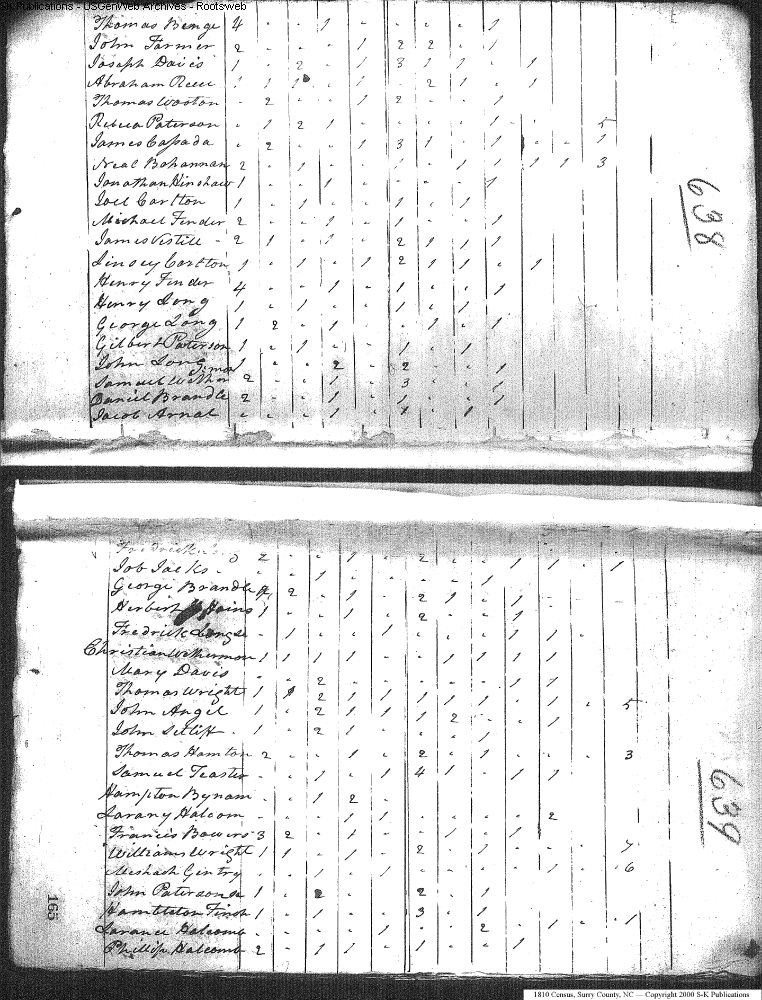 S-K Publications - USGenWeb Archives - Rootsweb
Thomas Benge 4 . . 1 . . . . 1
John Farmer 2 . . . 1 2 2 . 1
Joseph Davis 1 . 2 . 1 3 1 1 . 1
Abraham Reece 1 1 1 . 1 . 2 1 . 1
Thomas Wooton . 2 . . 1 2 . . 1
Rebeca Paterson . 1 2 1 . . . . 1 . . 5
James Capada . 2 . . 1 3 1 . 1 . . 1
Neal Bohannan 2 . 1 . . 1 . 1 1 1 1 3
Jonathan Hinshaw 1 . . 1 . . . . 1
Joel Carlton 1 . 1 . . 1 . 1
Michael Fender 2 . . 1 . 1 . . 1
James Vestill - 2 1 . 1 . 2 1 1 1
Linsey Carlton 1 . 1 . 1 2 1 1 . 1
Henry Fender 4 . . 1 . 1 . . 1
Henry Long 1 . 1 . . 1 . 1
George Long 1 2 . 1 . . 1 . 1
Gilbert Paterson 1 . 1 . . 1 . 1
John Long 1 . . 2 . 2 . . 1
Samuel 2 . . 1 . 3 . . 1
Daniel Brandle 2 . . 1 . 1 . . 1
Jacob Arnal . . . 1 . 1 . 1
638
Fredrick 2 . . 1 . 2 . . 1 1 . 1
Job Jacks . . 1 . . . . 1
George Brandle 4 2 . 1 . 2 1 . 1
Herbert Hains 1 . . . 2 . . 1
Fredrick . 1 . . 1 . . . 1 1
Christian 1 1 1 1 . . 1 1 1 1
Mary Davis . . 2 . . . . . 1 1
Thomas Wright 1 1 2 1 1 1 1 1 1 1 . 5
John Angel 1 . 2 1 1 1 2 . . 1
John Setliff . 1 . 2 1 . . . 1
Thomas Hamton 2 . . 1 . 2 . 1 . . . 3
Samuel Teaster . . 1 . 1 4 1 . 1 1
Hampton Bynam . . 1 2 .
Larany Halcom . . . 1 1 . . . . 2
Francis Bowers 3 2 . 1 . . 1 . 1
Williams Wright 1 1 . 1 . 2 . 1 . . . 7
Meshach Gentry . . 1 . 1 . . . . 1 . 6
John Paterson 1 . 2 . . 2 . 1
Hambleton Finsh 1 . 1 . . 3 . 1
Larance Halcomb . . . . 1 . . 2 . 1 . 1
Phillip Halcomb 2 . 1 1 . 1 . . 1
639
165
1810 Census, Surry County, NC — Copyright 2000 S-K Publications